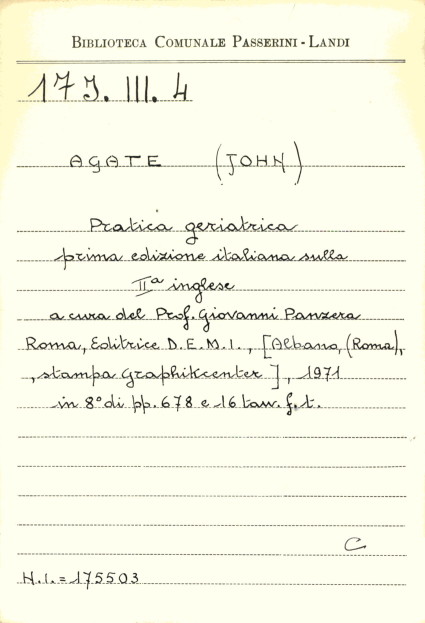 BIBLIOTECA COMUNALE PASSERINI - LANDI
17 J. III. 4
AGATE (JOHN)
Pratica geriatrica
prima edizione italiana sulla
IIª inglese
a cura del Prof. Giovanni Panzera
Roma, Editrice D.E.M.I., [Albano, (Roma),
, stampa Graphikcenter], 1971
in 8° di pp. 678 e 16 tav. f.t.
C
N.I. = 175503